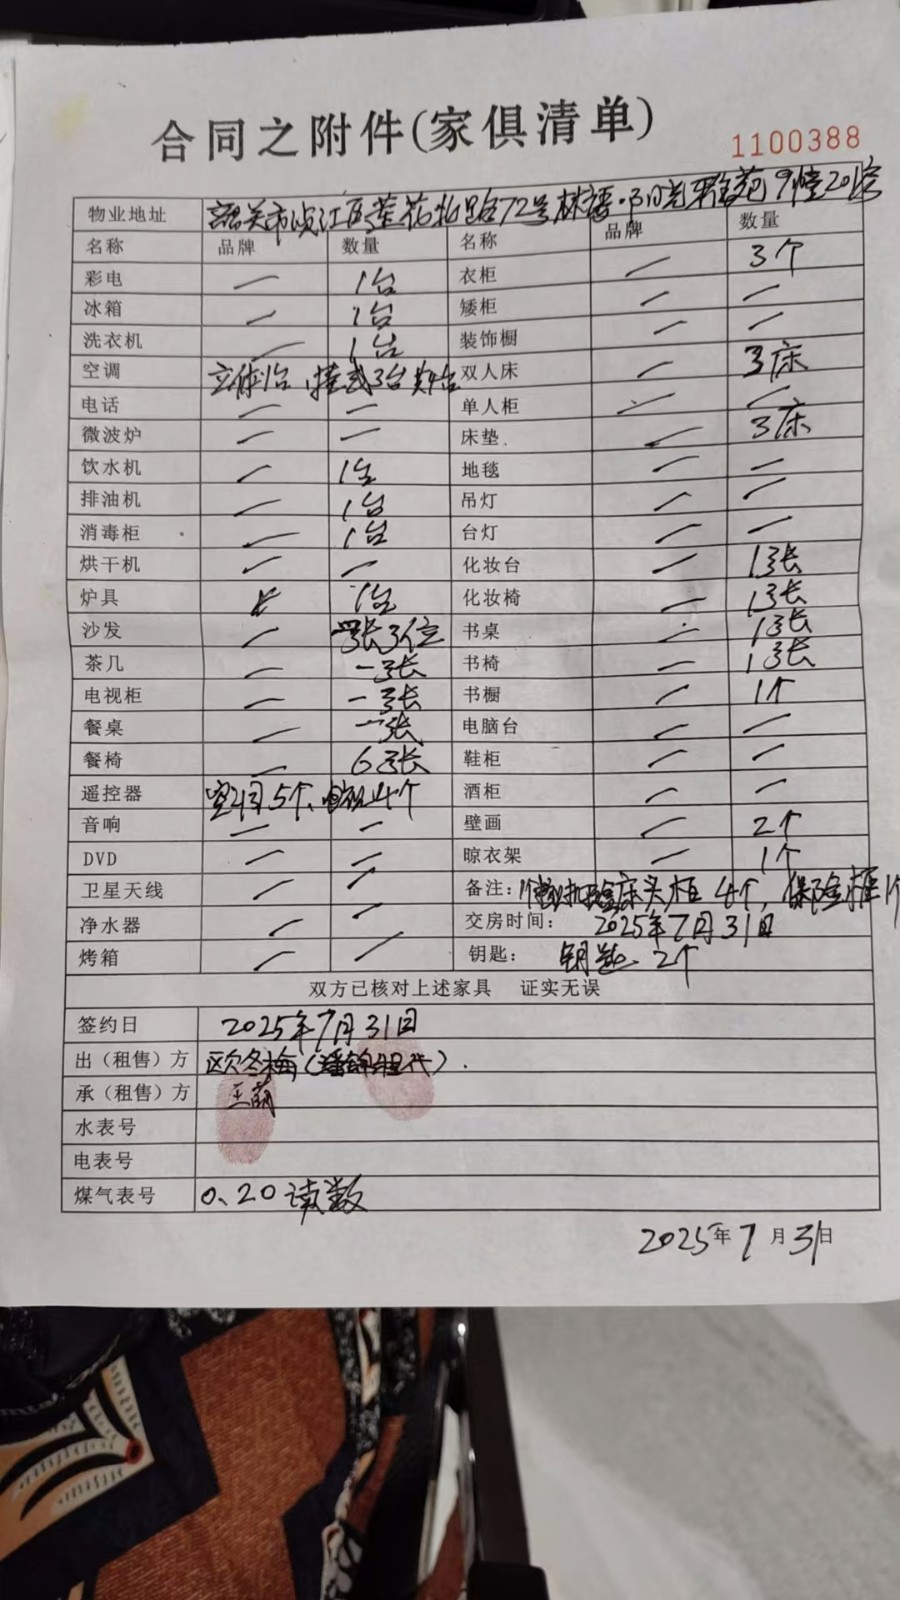 合同之附件(家俱清单)
1100388
物业地址 韶关市浈江区莲花北路72号林语·阳光雅苑9幢20
名称 品牌 数量 名称 品牌 数量
彩电 — 1台 衣柜 — 3个
冰箱 — 1台 矮柜 — —
洗衣机 — 1台 装饰橱 — —
空调 立体1台,挂式3台共4台 双人床 — 3床
电话 — — 单人柜 — —
微波炉 — — 床垫. — 3床
饮水机 — 1台 地毯 — —
排油机 — 1台 吊灯 — —
消毒柜 — 1台 台灯 — —
烘干机 — — 化妆台 — 1张
炉具 1台 化妆椅 — 1张
沙发 — 张3位 书桌 — 1张
茶几 — 一张 书椅 — 1张
电视柜 — 一张 书橱 — 1个
餐桌 — 一张 电脑台 — —
餐椅 — 6张 鞋柜 — —
遥控器 空调5个、电视4个 酒柜 — —
音响 — — 壁画 — 2个
DVD — — 晾衣架 — 1个
卫星天线 — — 备注: 床头柜4个,保险柜1个
净水器 — — 交房时间: 2025年7月31日
烤箱 — — 钥匙: 钥匙 2个
双方已核对上述家具 证实无误
签约日 2025年7月31日
出(租售)方 欧冬梅(潘锦程代).
承(租售)方 王萌
水表号
电表号
煤气表号 0、20读数
2025年7月31日